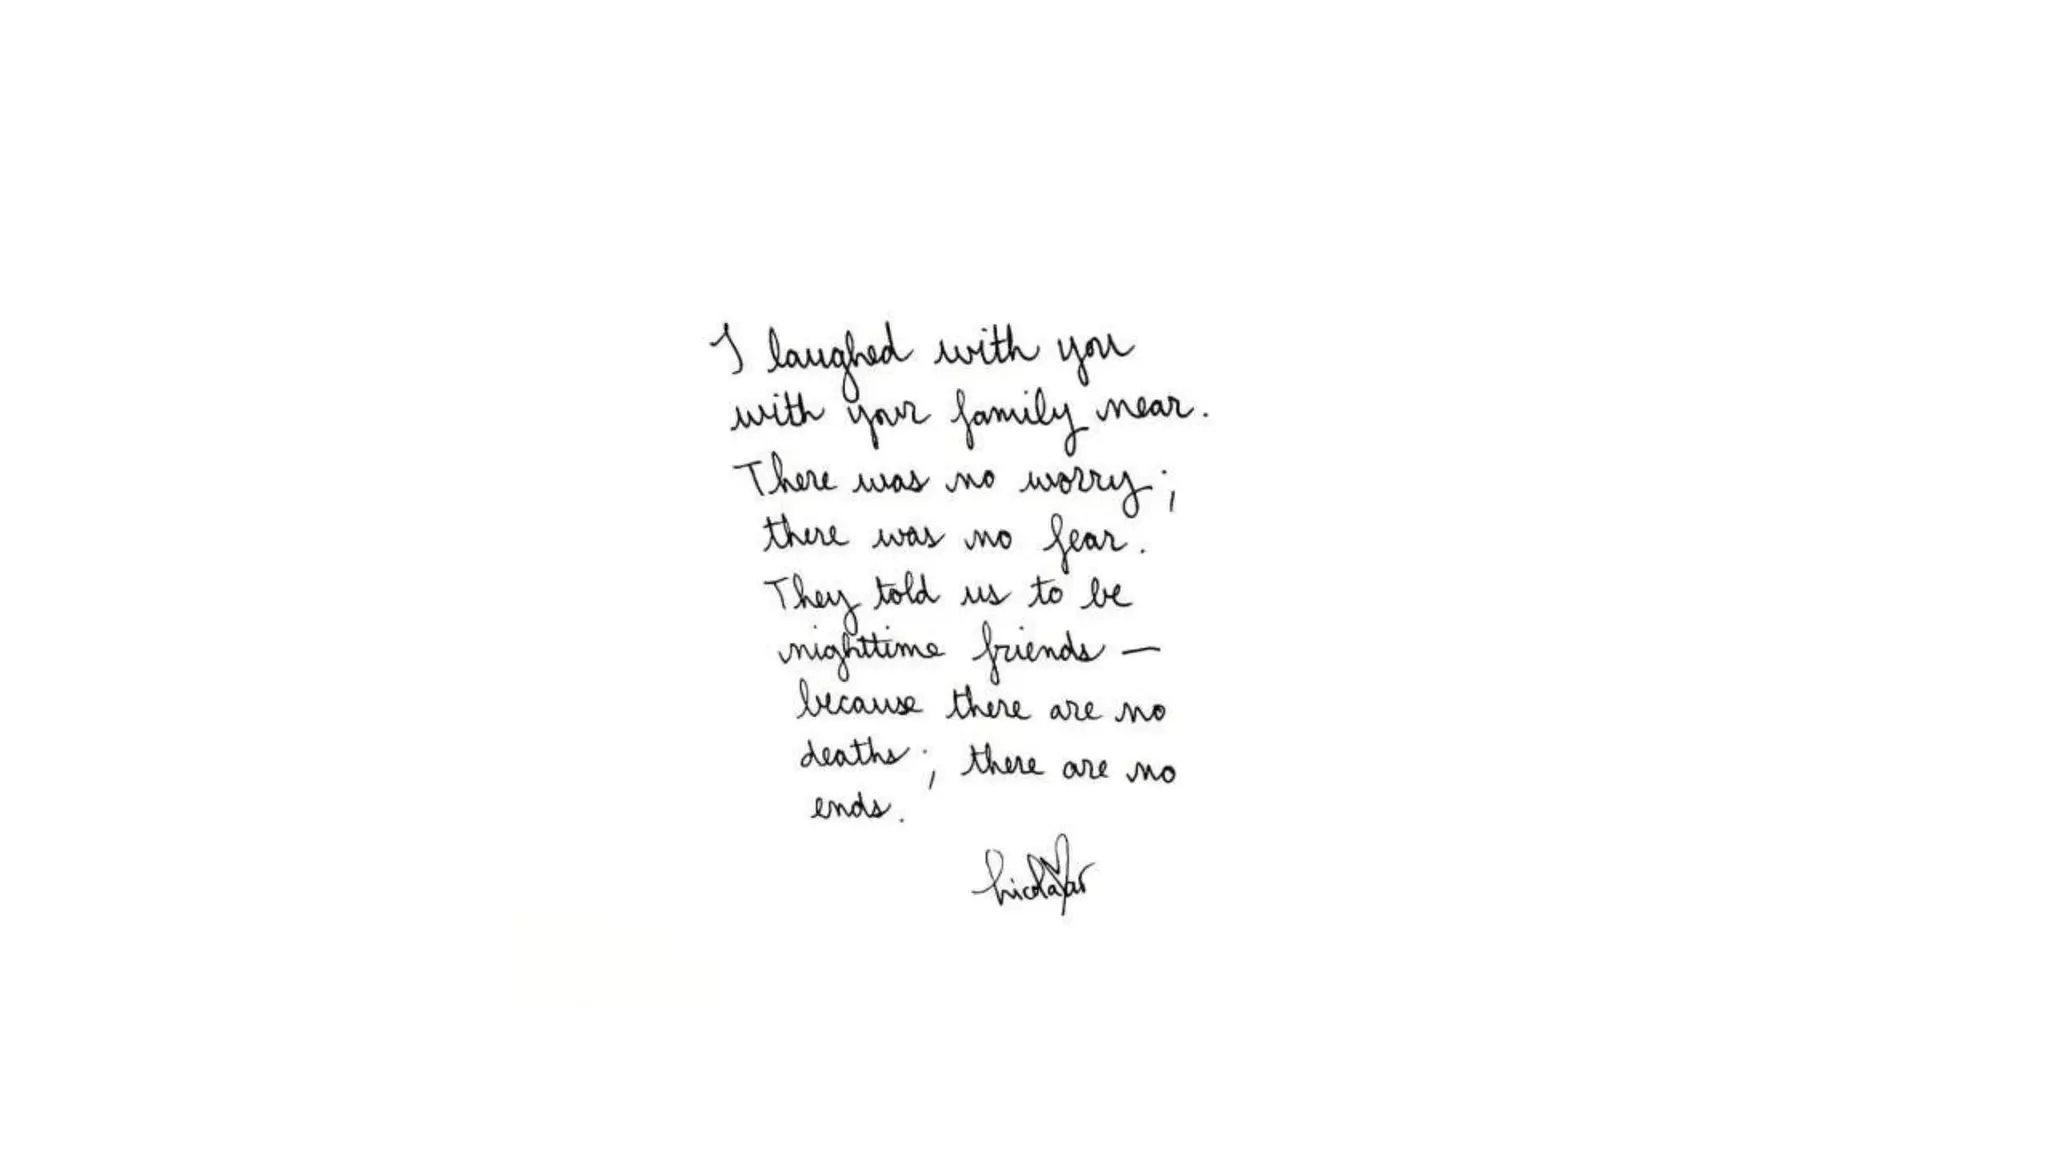 I laughed with you
with your family near.
There was no worry;
there was no fear.
They told us to be
nighttime friends —
because there are no
deaths; there are no
ends.